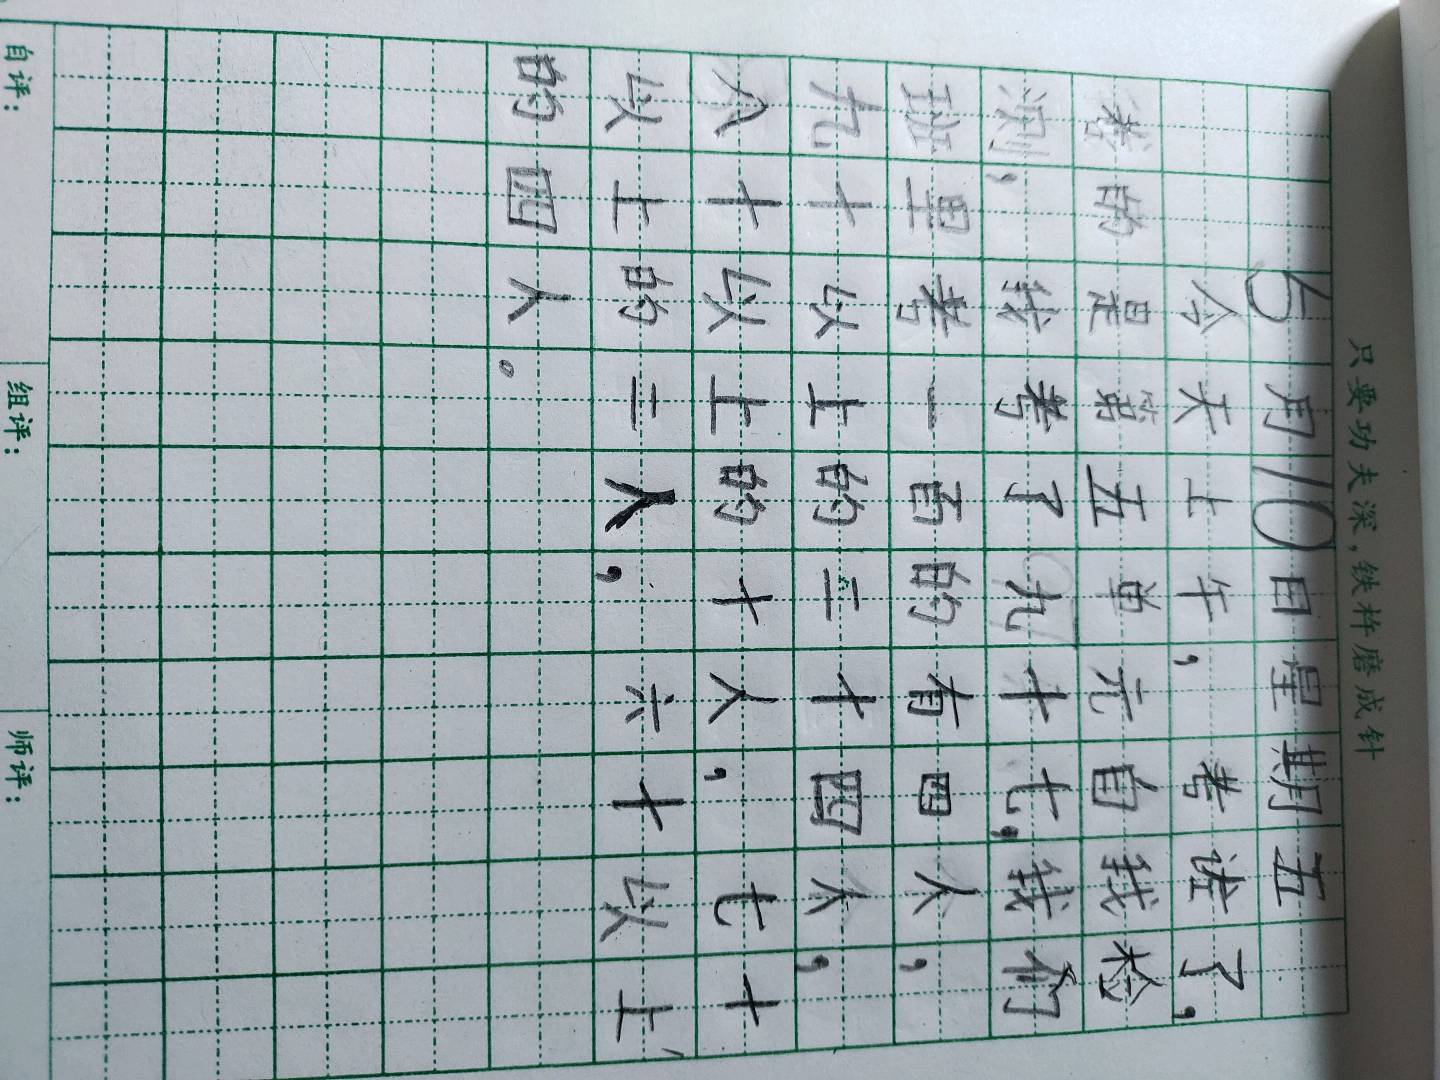 只要功夫深,铁杵磨成针
5月10日星期五
今天上午,考试了,
考的是第五单元自我检
测,我考了九十七,我们
班里考一百的有四人,
九十以上的二十四人,
八十以上的十人,七十
以上的二人,六十以上
的四人。
自评: 组评: 师评: